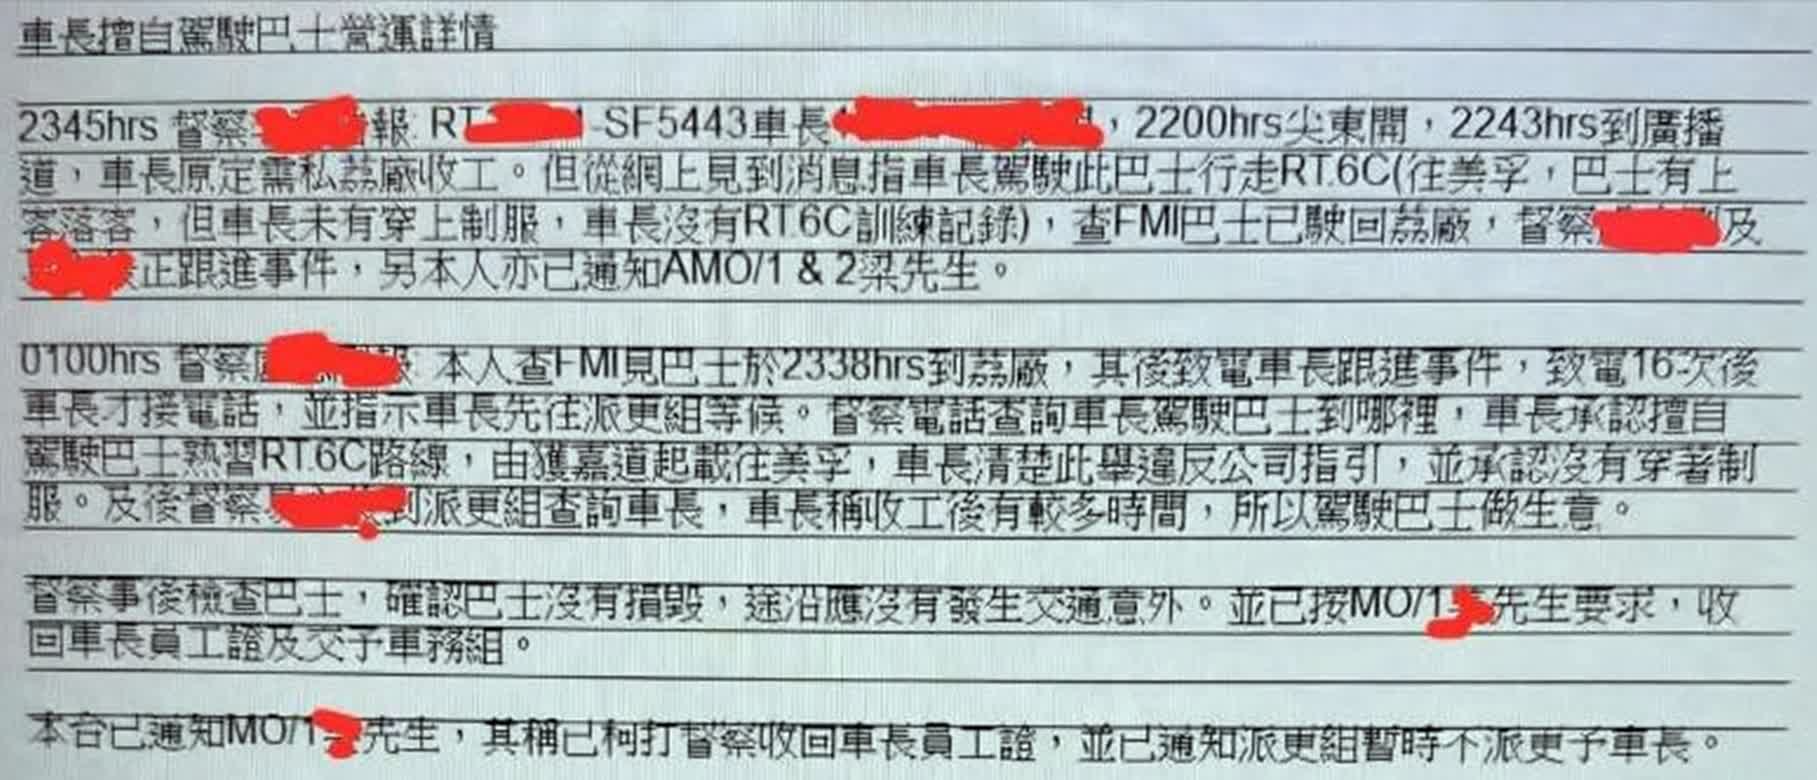 車長擅自駕駛巴士營運詳情
2345hrs 督察 報 RT SF5443車長 ，2200hrs尖東開，2243hrs到廣播
道，車長原定需私荔廠收工。但從網上見到消息指車長駕駛此巴士行走RT.6C(往美孚，巴士有上
客落客，但車長未有穿上制服，車長沒有RT.6C訓練記錄)，查FMI巴士已駛回荔廠，督察 及
正跟進事件，另本人亦已通知AMO/1 & 2梁先生。
0100hrs 督察 報 本人查FMI見巴士於2338hrs到荔廠，其後致電車長跟進事件，致電16次後
車長才接電話，並指示車長先往派更組等候。督察電話查詢車長駕駛巴士到哪裡，車長承認擅自
駕駛巴士熟習RT.6C路線，由獲嘉道起載往美孚，車長清楚此舉違反公司指引，並承認沒有穿著制
服。及後督察 到派更組查詢車長，車長稱收工後有較多時間，所以駕駛巴士做生意。
督察事後檢查巴士，確認巴士沒有損毀，途沿應沒有發生交通意外。並已按MO/1 先生要求，收
回車長員工證及交予車務組。
本台已通知MO/1 先生，其稱已柯打督察收回車長員工證，並已通知派更組暫時不派更予車長。